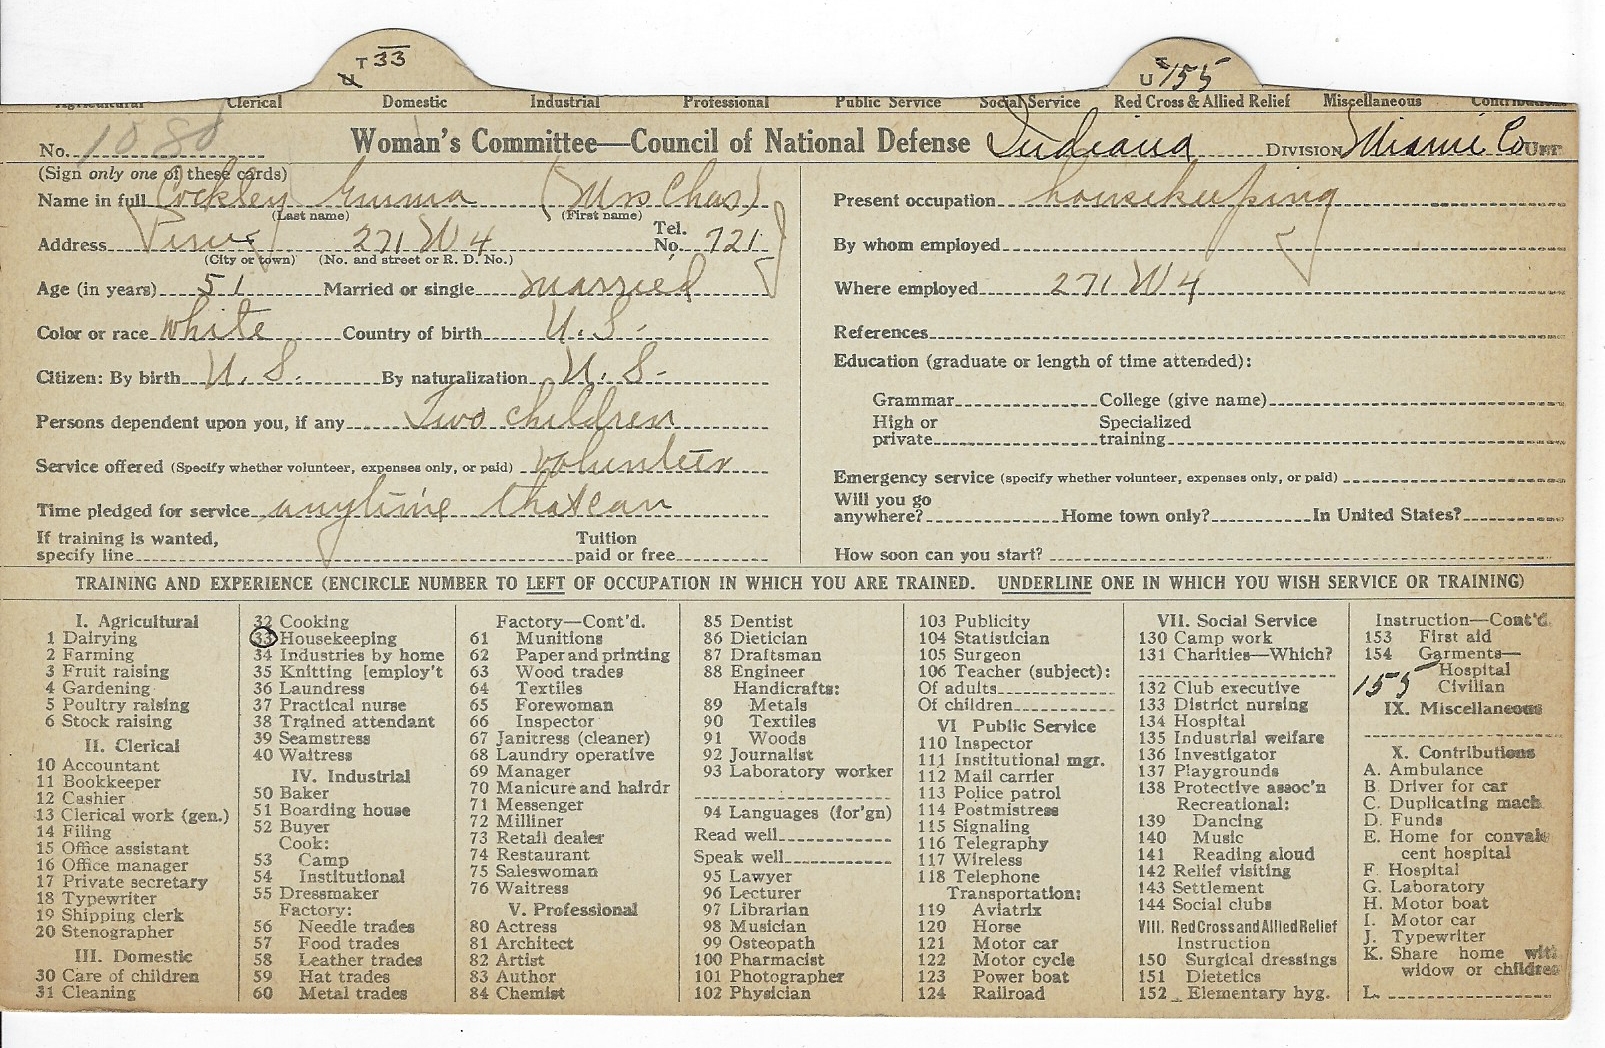 T 33
U
U 155
Agricultural Clerical Domestic Industrial Professional Public Service Social Service Red Cross & Allied Relief Miscellaneous Contributions
No. 1080 Woman's Committee—Council of National Defense Indiana DIVISION Miami Co UNIT
(Sign only one of these cards)
Name in full Cockley Emma (Mrs Chas)
(Last name) (First name)
Address Peru 271 W 4 Tel. No. 721
(City or town) (No. and street or R. D. No.)
Age (in years) 51 Married or single married
Color or race white Country of birth U. S.
Citizen: By birth U. S. By naturalization U. S.
Persons dependent upon you, if any Two children
Service offered (Specify whether volunteer, expenses only, or paid) volunteer
Time pledged for service anytime that can
If training is wanted, specify line Tuition paid or free
Present occupation housekeeping
By whom employed
Where employed 271 W 4
References
Education (graduate or length of time attended):
Grammar College (give name)
High or private Specialized training
Emergency service (specify whether volunteer, expenses only, or paid)
Will you go anywhere? Home town only? In United States?
How soon can you start?
TRAINING AND EXPERIENCE (ENCIRCLE NUMBER TO LEFT OF OCCUPATION IN WHICH YOU ARE TRAINED. UNDERLINE ONE IN WHICH YOU WISH SERVICE OR TRAINING)
I. Agricultural
1 Dairying
2 Farming
3 Fruit raising
4 Gardening
5 Poultry raising
6 Stock raising
II. Clerical
10 Accountant
11 Bookkeeper
12 Cashier
13 Clerical work (gen.)
14 Filing
15 Office assistant
16 Office manager
17 Private secretary
18 Typewriter
19 Shipping clerk
20 Stenographer
III. Domestic
30 Care of children
31 Cleaning
32 Cooking
33 Housekeeping
34 Industries by home
35 Knitting [employ't
36 Laundress
37 Practical nurse
38 Trained attendant
39 Seamstress
40 Waitress
IV. Industrial
50 Baker
51 Boarding house
52 Buyer
Cook:
53 Camp
54 Institutional
55 Dressmaker
Factory:
56 Needle trades
57 Food trades
58 Leather trades
59 Hat trades
60 Metal trades
Factory—Cont'd.
61 Munitions
62 Paper and printing
63 Wood trades
64 Textiles
65 Forewoman
66 Inspector
67 Janitress (cleaner)
68 Laundry operative
69 Manager
70 Manicure and hairdr
71 Messenger
72 Milliner
73 Retail dealer
74 Restaurant
75 Saleswoman
76 Waitress
V. Professional
80 Actress
81 Architect
82 Artist
83 Author
84 Chemist
85 Dentist
86 Dietician
87 Draftsman
88 Engineer
Handicrafts:
89 Metals
90 Textiles
91 Woods
92 Journalist
93 Laboratory worker
94 Languages (for'gn)
Read well
Speak well
95 Lawyer
96 Lecturer
97 Librarian
98 Musician
99 Osteopath
100 Pharmacist
101 Photographer
102 Physician
103 Publicity
104 Statistician
105 Surgeon
106 Teacher (subject):
Of adults
Of children
VI Public Service
110 Inspector
111 Institutional mgr.
112 Mail carrier
113 Police patrol
114 Postmistress
115 Signaling
116 Telegraphy
117 Wireless
118 Telephone
Transportation:
119 Aviatrix
120 Horse
121 Motor car
122 Motor cycle
123 Power boat
124 Railroad
VII. Social Service
130 Camp work
131 Charities—Which?
132 Club executive
133 District nursing
134 Hospital
135 Industrial welfare
136 Investigator
137 Playgrounds
138 Protective assoc'n
Recreational:
139 Dancing
140 Music
141 Reading aloud
142 Relief visiting
143 Settlement
144 Social clubs
VIII. Red Cross and Allied Relief
Instruction
150 Surgical dressings
151 Dietetics
152 Elementary hyg.
Instruction—Cont'd.
153 First aid
154 Garments—
Hospital
155 Civilian
IX. Miscellaneous
X. Contributions
A. Ambulance
B. Driver for car
C. Duplicating mach
D. Funds
E. Home for convales
cent hospital
F. Hospital
G. Laboratory
H. Motor boat
I. Motor car
J. Typewriter
K. Share home with
widow or children
L.